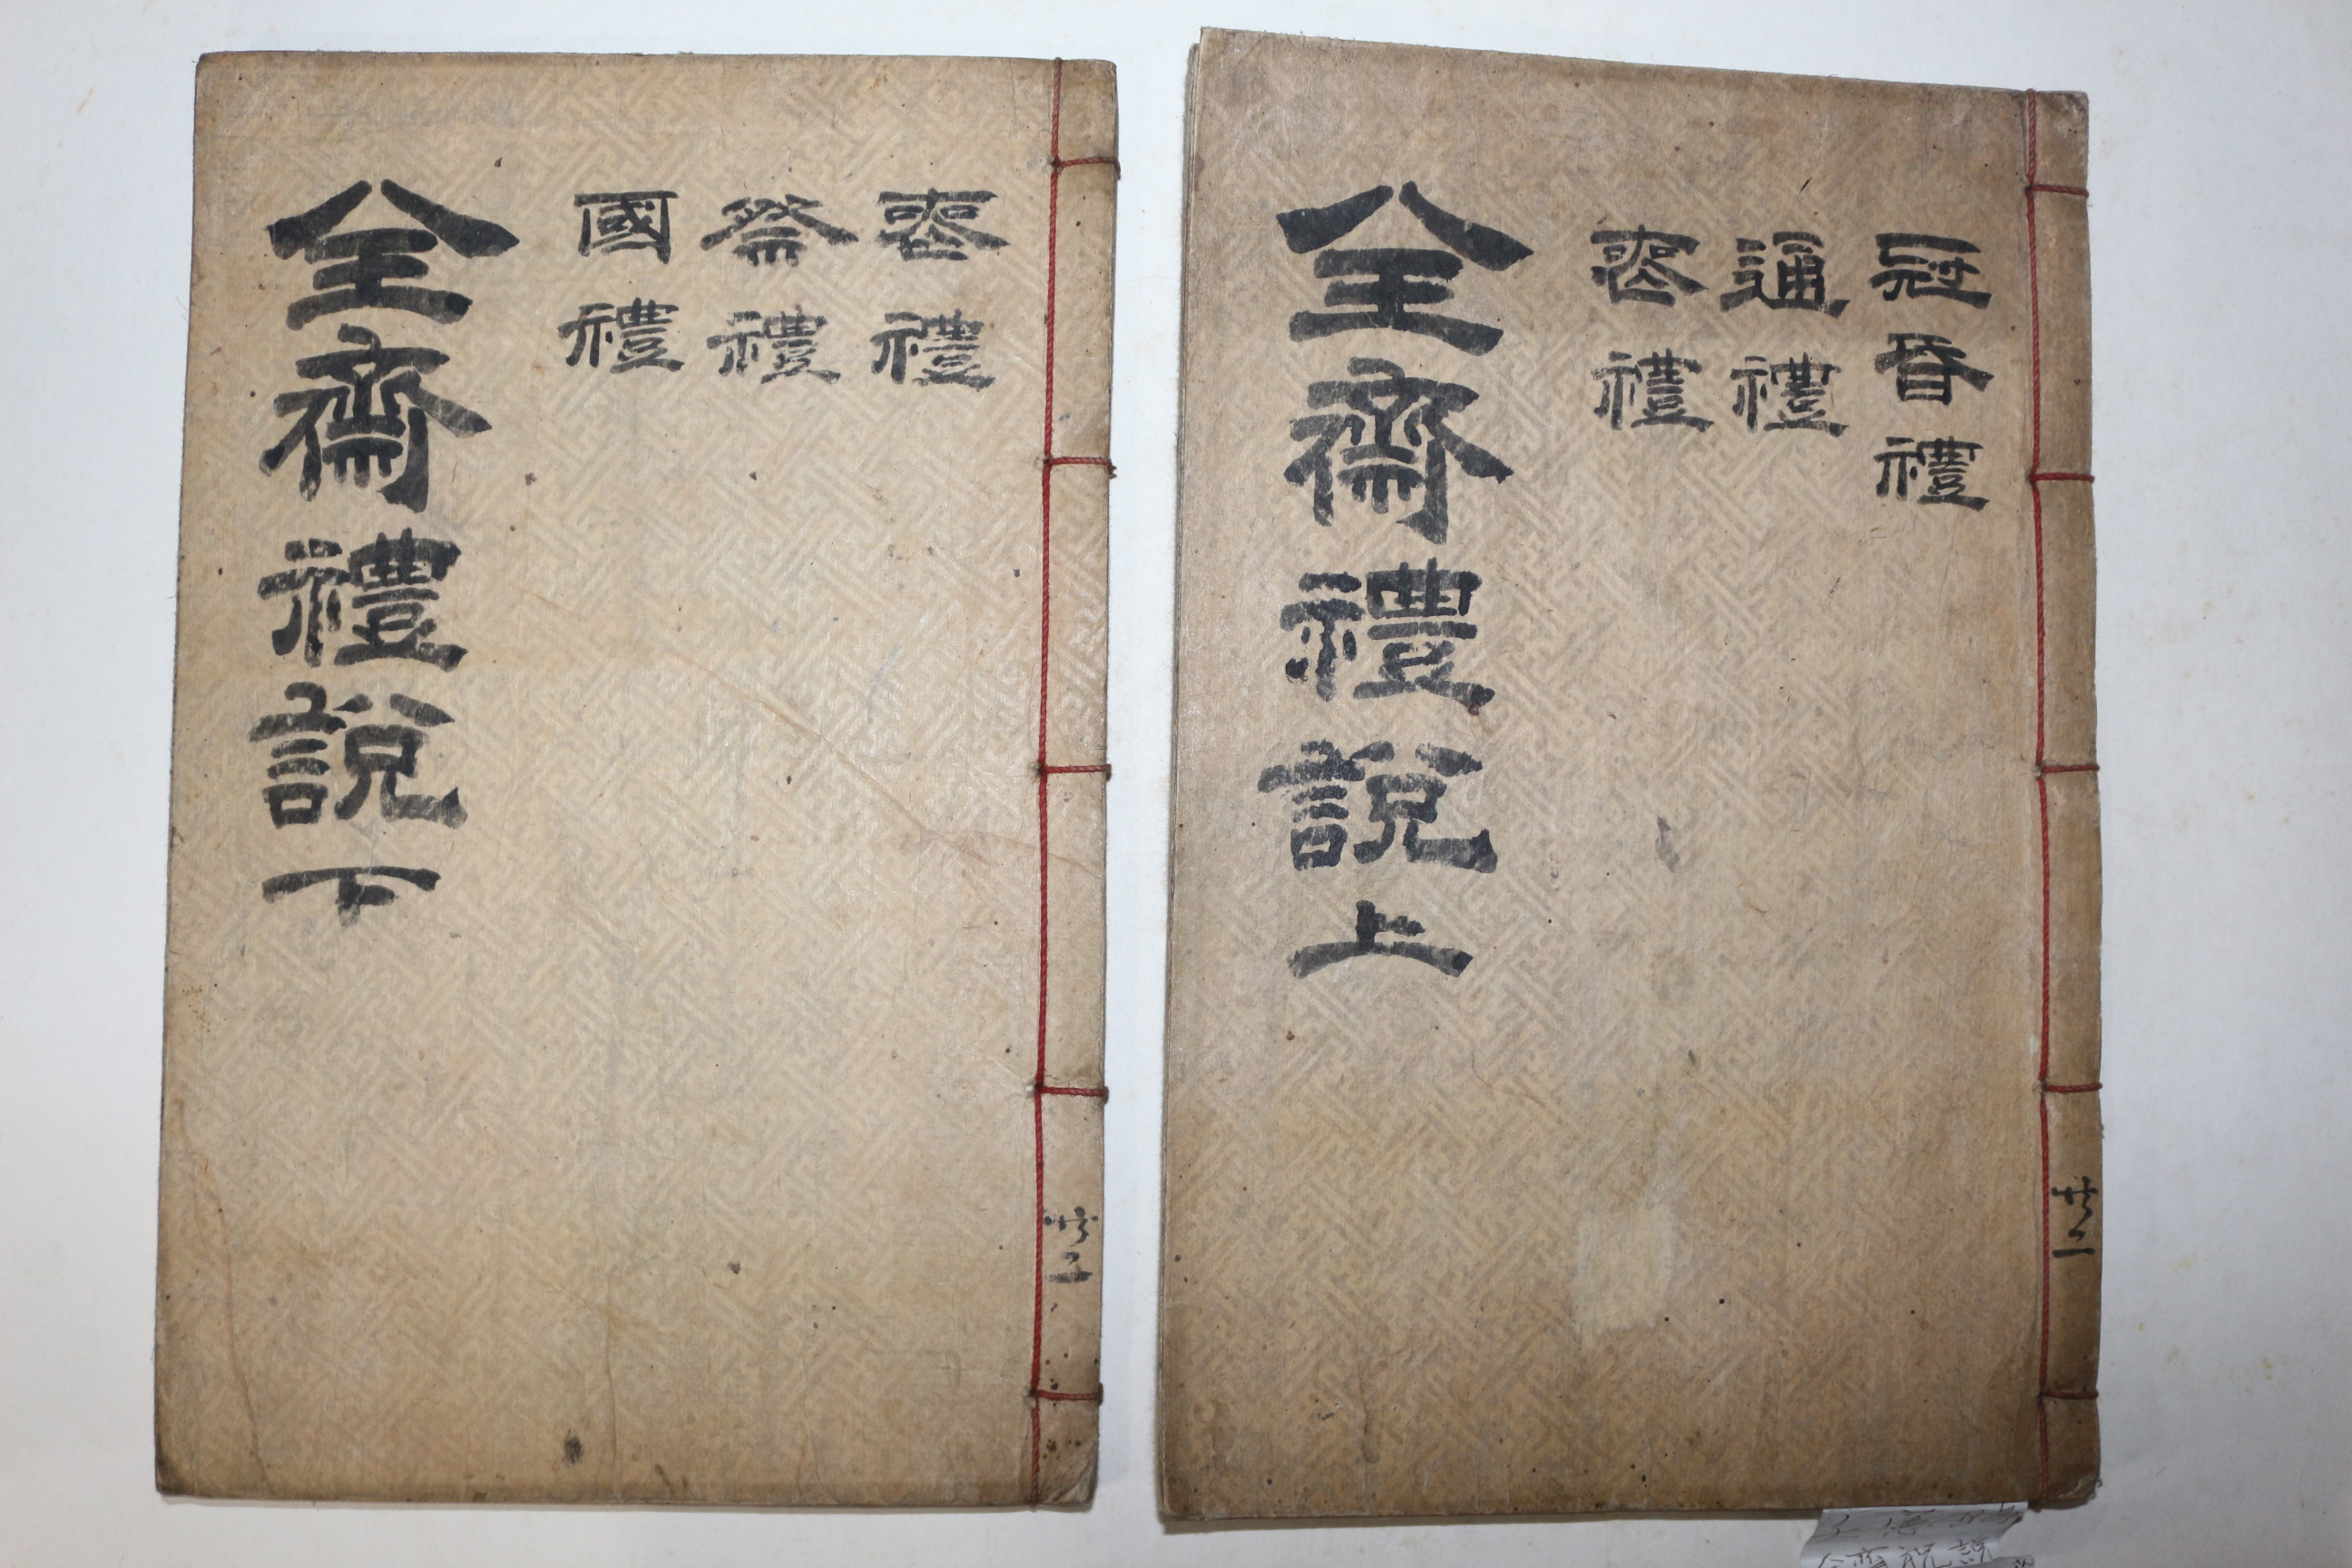 冠昏禮
通禮
喪禮
全齋禮說上
共二
喪禮
祭禮
國禮
全齋禮說下
共二